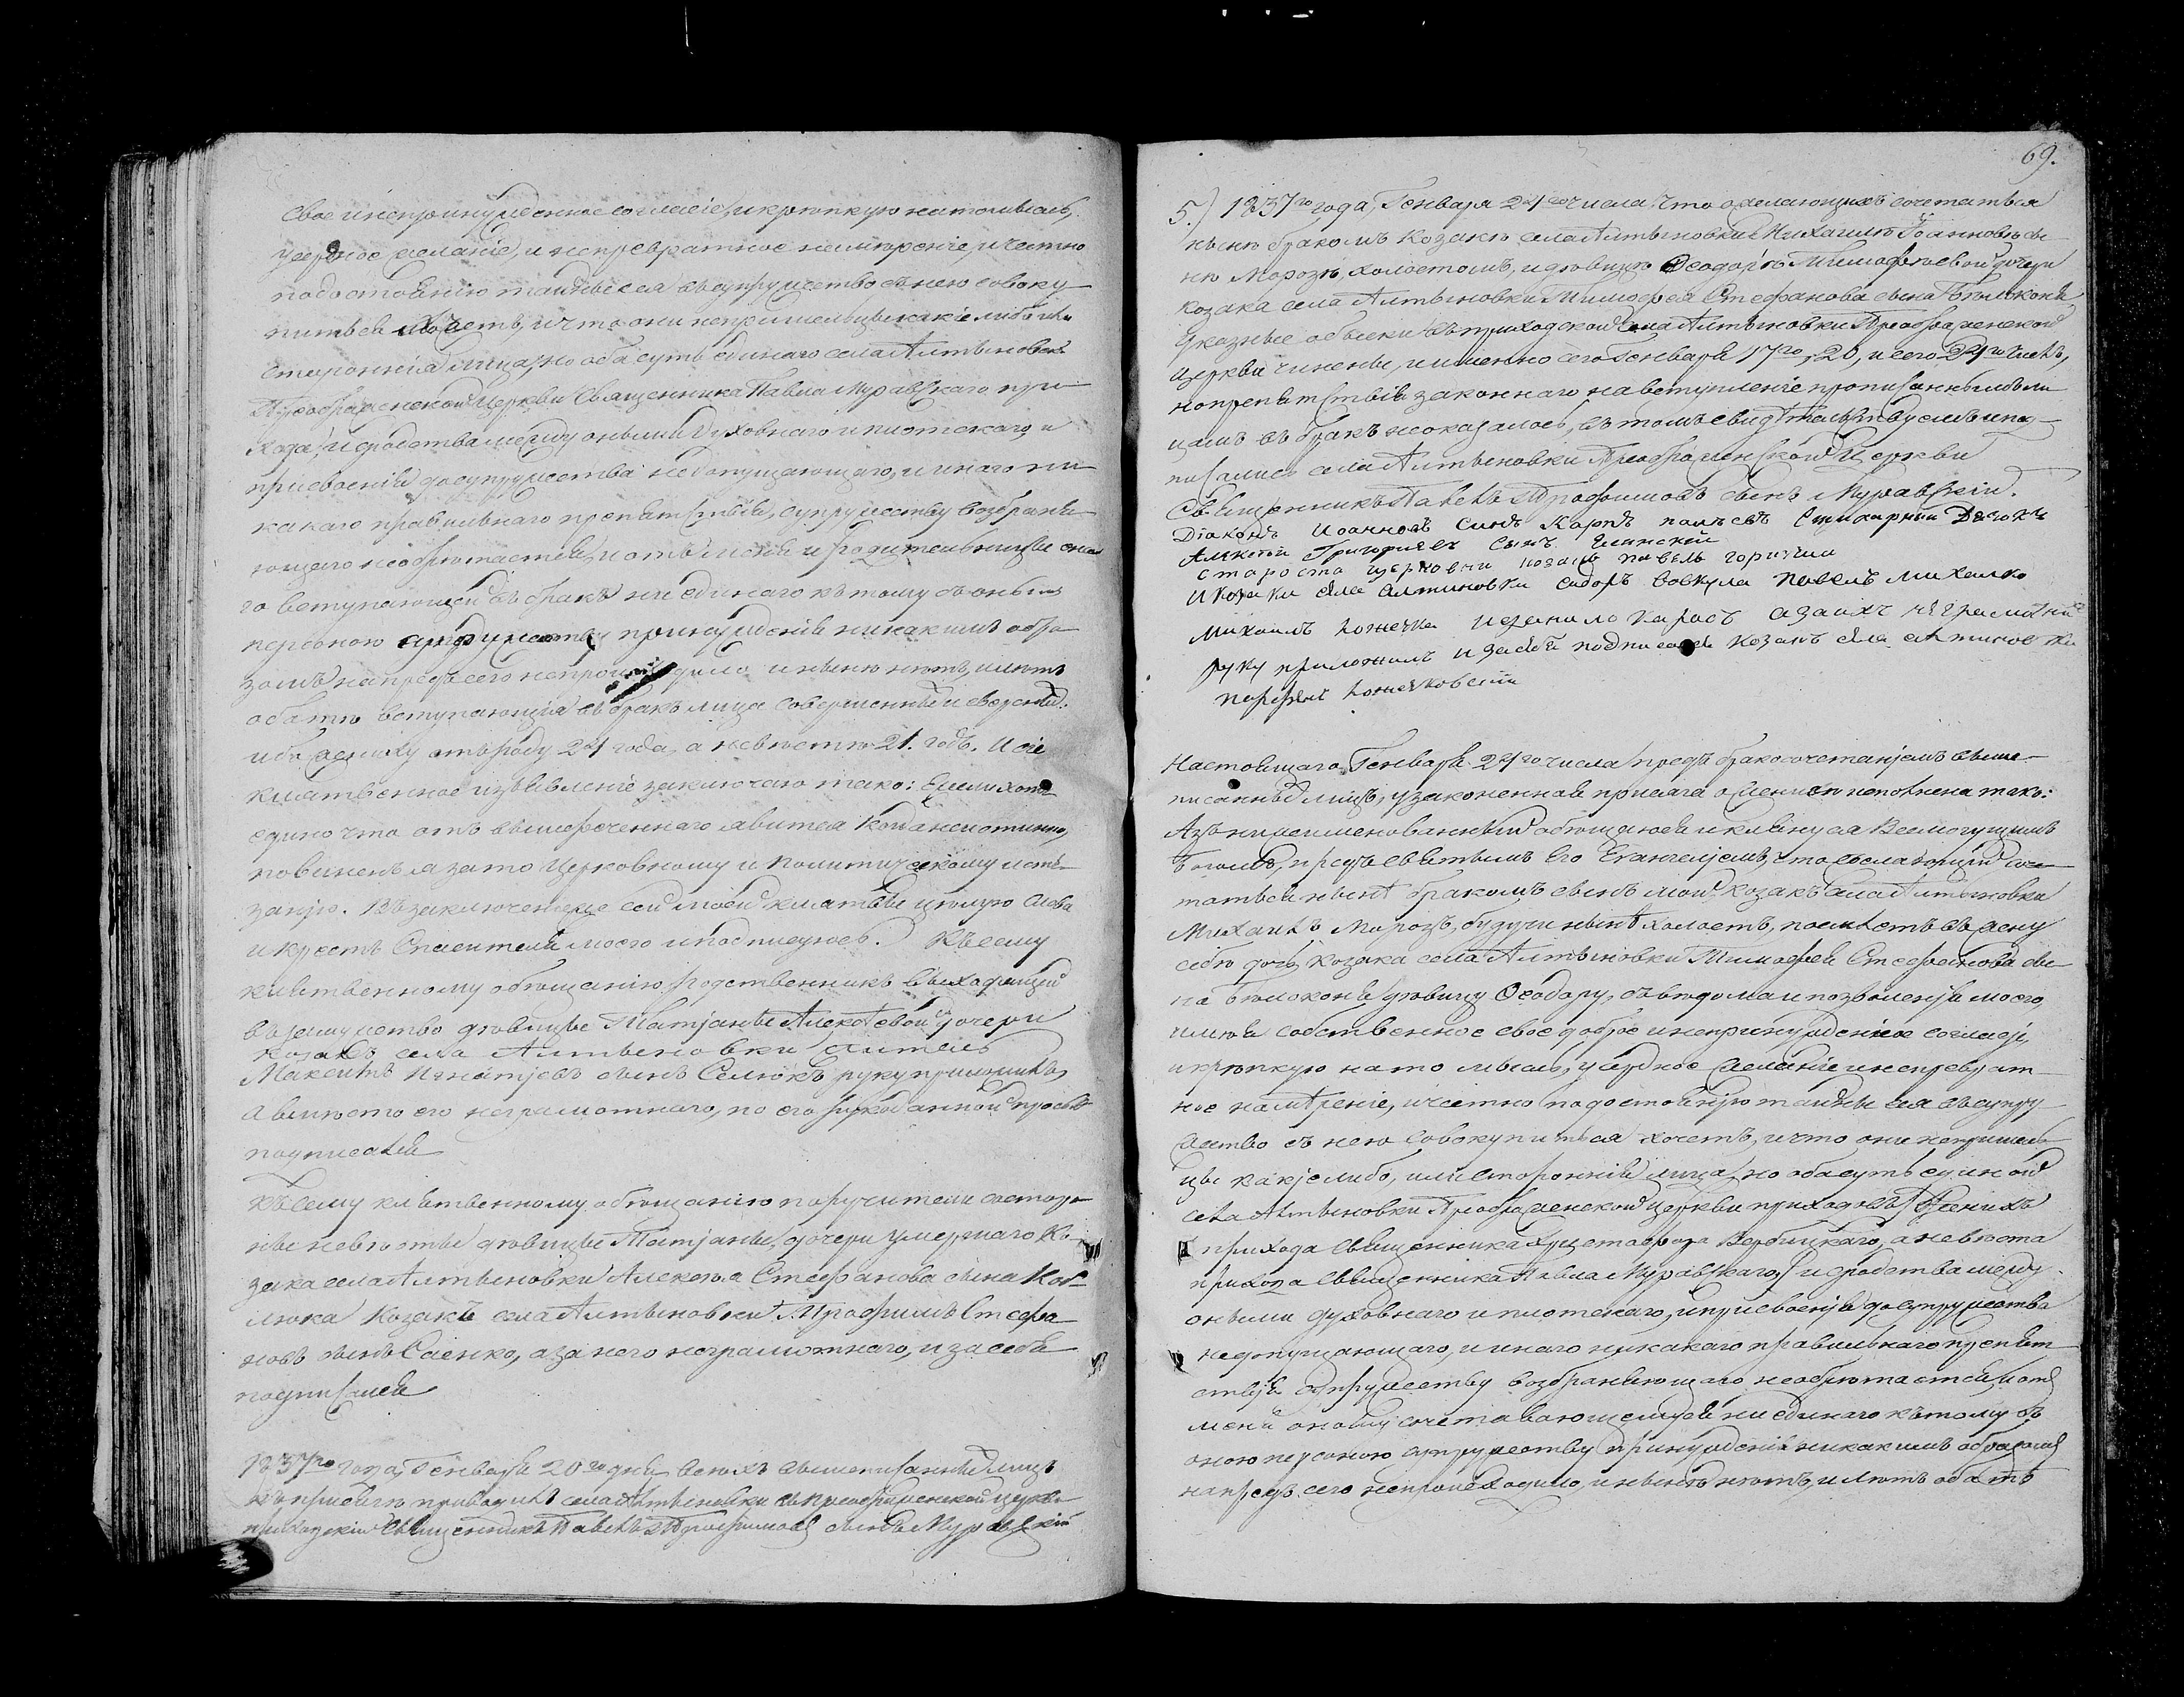 свое инепринужденное согласіе, икрѣпкую натомысль,
усердное желаніе, и непревратное намѣреніе, и честно
подостоянію тайны сея въсупружество съ нею совоку
питься хочетъ, и что они непришельцы какіе либо или
стороннія лица, но оба суть единаго села Алтыновки
Преображенской Церкви Священника Павла Муравскаго при
хода, и сродства между оными духовнаго и плотскаго, и
присвоенія досупружества недопущающаго, и инаго ни
какаго правильнаго препятствія, супружеству возбраня
ющаго необрѣтается, и отъ мене и родительницы оной
го вступающей въ бракъ ни единаго къ тому съ оным
персоною супружеству принужденія никакимъ обра
зомъ напредъ сего непроисходило и нынѣ нѣтъ, и лѣтъ
обатѣ вступающія въ бракъ лица совершенныи своерсныи.
ибо жениху отъ роду 24 года, а невѣстѣ 21. годъ. И сіе
клятвенное изъявленіе заключаю тако: Ежели хотя
едино что отъ вышереченнаго явится когда неистинно,
повиненъ я за то Церковному и политическому истя
занію. Въ заключеніе сей моей клятвы цѣлую Слова
и крестъ Спасителя моего и подписуюсь. Къ сему
клятвенному обѣщанію родственникъ выходящей
въ замужество дѣвицы Татіаны Алексѣевой дочери
Козакъ села Алтыновки житель
Максимъ Игнатіевъ сынъ Селюкъ руку приложилъ,
а вмѣсто его неграмотнаго, по его рукоданной прозьбѣ
подписался
Къ сему клятвенному обѣщанію поручители состоро
ны невѣсты дѣвицы Татіаны, дочери умершаго Ко
зака села Алтыновки Алексѣя Стефанова сына Ков
люка Козакъ села Алтыновки Трофимъ Стефа
новъ сынъ Саенко, а за него неграмотнаго, и за себе
подписался
1837го года, Генваря 20го дня, всѣхъ вышеписанныхъ лицъ
къ присягѣ приводилъ села Алтыновки въ преображенской церкви
приходскій Священникъ Павелъ Трофимовъ сынъ Муравскій
69.
5.) 1837го года, Генваря 24го числа, что ожелающихъ сочетаться
нынѣ бракомъ Козакѣ села Алтыновки Михаилѣ Іоанновѣ сы
нѣ Морозѣ холостомъ, и дѣвицѣ Ѳеодорѣ Тимофѣевой дочери
козака села Алтыновки Тимофея Стефанова сына Бѣлоконя
указные обыски въ приходской села Алтыновки Преображенской
церкви чинены, и именно сего Генваря 17го, 20, и сего 24го числъ,
но препятствія законнаго на вступленіе прописаннымъ ли
цамъ въ бракъ неоказалось, въ томъ свидѣтельствуемъ и под
писались села Алтыновки Преображенской Церкви
Священникъ Павелъ Трофимовъ сынъ Муравскій.
Діаконъ Иоанновъ синъ Карпъ Стихарный Дячокъ
Алексѣй Григориевъ сынъ
староста церковни козакъ павелъ горичка
И козаки села Алтиновки сидоръ Вовкула Павелъ михалко
Михаилъ и данило Карасъ азаихъ неграмотних
руку приложилъ изасебя подписался козакъ села алтиновки
порфрій
Настоящаго Генваря 24го числа предъ бракосочетаніемъ выше
писанныхъ лицъ, узаконенная присяга о женихѣ исполнена тако:
Азъ нижеименованный обѣщаюся и клянуся Всемогущимъ
Богомъ, предъ святымъ Его Евангеліемъ, что желающій соче
таться нынѣ бракомъ сынъ мой козакъ села Алтыновки
Михаилъ Морозъ, будучи нынѣ холостъ, поемлетъ въ жену
себѣ дочь козака села Алтыновки Тимофея Стефанова сы
на Бѣлоконя дѣвицу Ѳеодору, съ вѣдома и позволенія моего,
имѣя собственное свое доброе инепринужденное согласіе,
и крѣпкую на то мысль, усердное желаніе и непреврат
ное намѣреніе, и честно подостоянію тайны сея въсупру
жество съ нею совокупиться хочетъ, и что они непришель
цы какіе либо, или сторонніи лица, но оба суть единой
села Алтыновки Преображенской церкви приходовъ Женихъ
прихода священника Христофора Вербицкаго, а невѣста
прихода священника Павла Муравскаго, и сродства между
оными духовнаго и плотскаго, и присвоенія досупружества
недопущающаго, и инаго никакаго правильнаго препят
ствія супружеству возбраняющаго необрѣтается, и отъ
мене оному сочетавающемуся ни единаго къ тому съ
оною персоною супружеству принужденія никакимъ образомъ
напредъ сего непроисходило, и нынѣ нѣтъ, и лѣтъ обатѣ